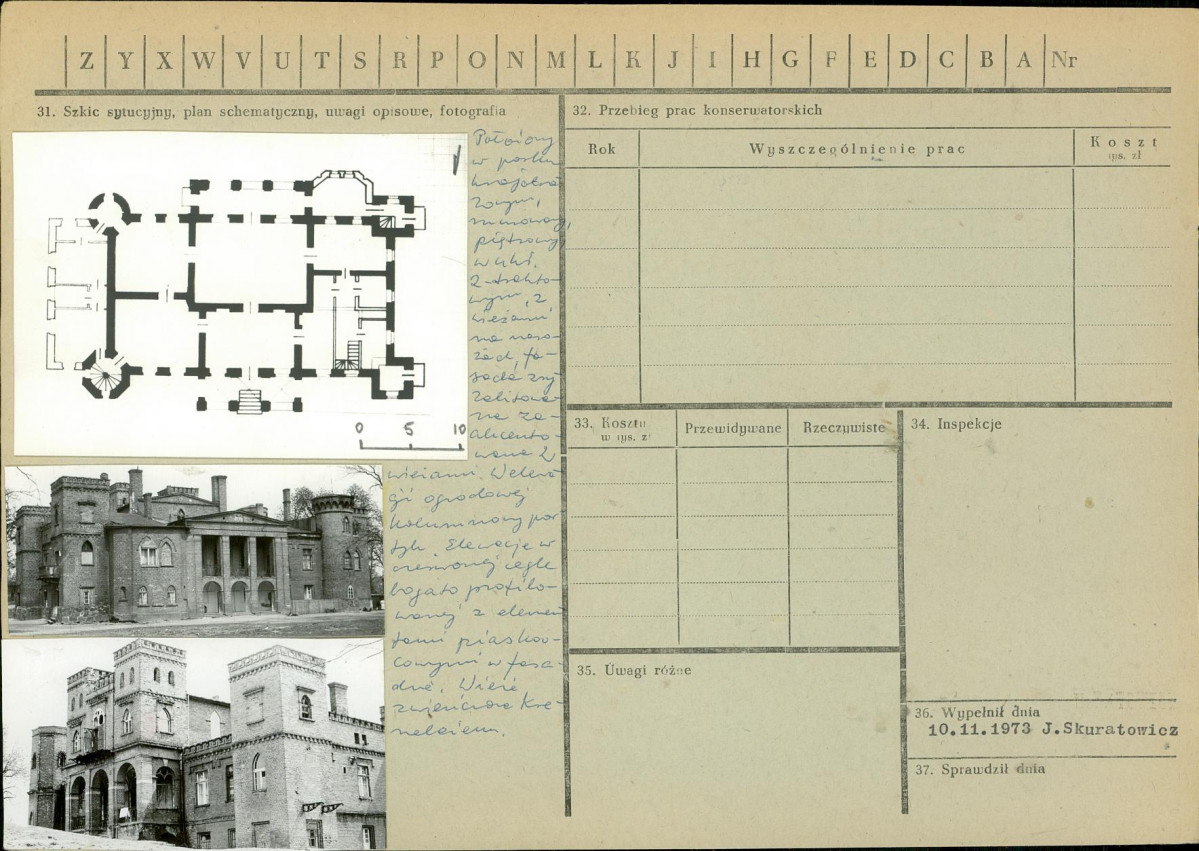 Z Y X W V U T S R P O N M L K J I H G F E D C B A Nr
31. Szkic sytucyjny, plan schematyczny, uwagi opisowe, fotografia
0 5 10
Położony
w parku
krajobra
zowym,
murowany,
piętrowy,
w ukł.
2-trakto-
wym, z
wieżami
na naro-
żach, fa-
sada zry
zalitowa-
na za-
akcento-
wana 2
wieżami. W elewa
cji ogrodowej
kolumnowy por
tyk. Elewacje w
czerwonej cegle
bogato profilo-
wanej z elemen
tami piaskow-
cowymi w fasa-
dzie. Wieże
zwieńczone kre-
nelażem.
32. Przebieg prac konserwatorskich
Rok
Wyszczególnienie prac
Koszt
tys. zł
33. Koszty
w tys. zł
Przewidywane
Rzeczywiste
34. Inspekcje
35. Uwagi różne
36. Wypełnił dnia
10.11.1973 J.Skuratowicz
37. Sprawdził dnia